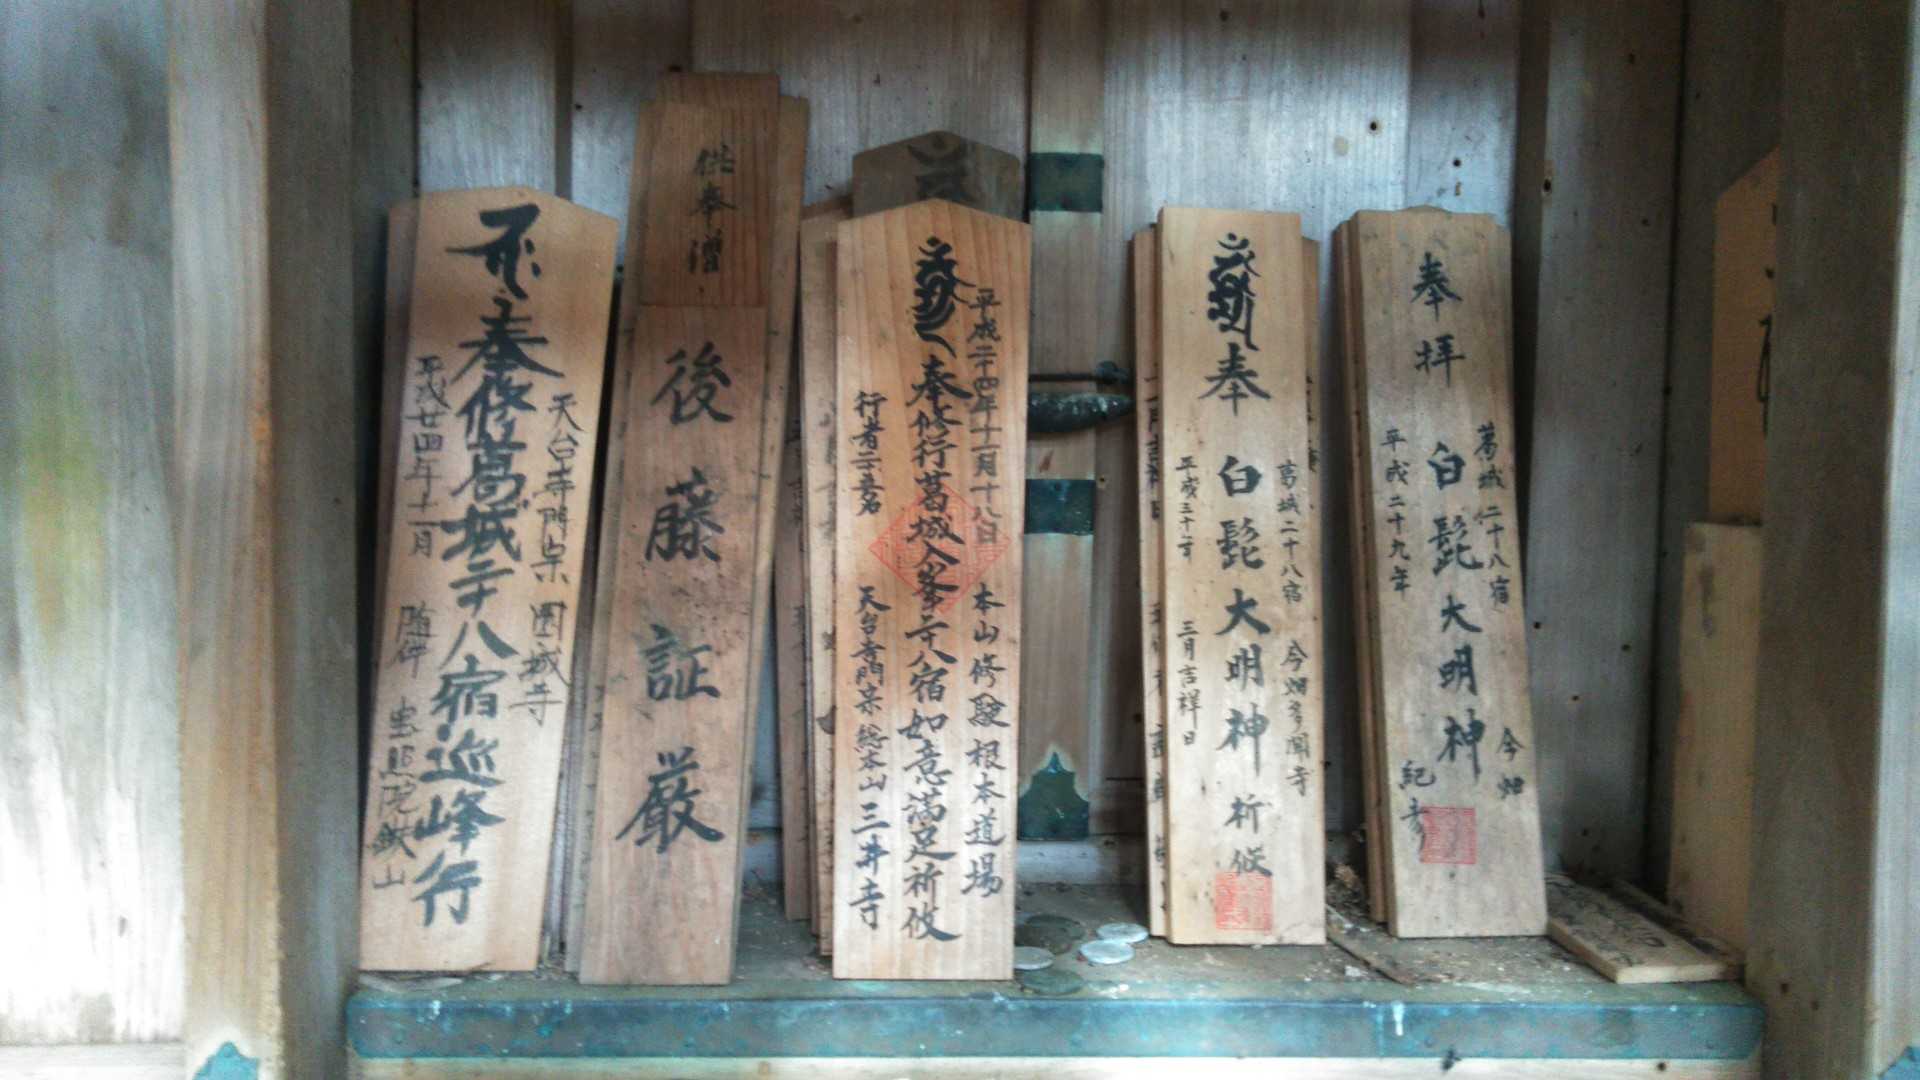 奉修葛城二十八宿巡峰行
天台寺門宗 園城寺
平成廿四年十一月
随伴
院鉄山
供奉
後藤証厳
平成二十四年十一月十八日
奉修行葛城入峯二十八宿如意満足祈攸
本山修験根本道場
行者
天台寺門宗総本山三井寺
奉 白髭大明神 祈攸
葛城二十八宿 今畑多聞寺
平成三十年 三月吉祥日
奉拝 白髭大明神
葛城二十八宿 今畑
平成二十九年
紀